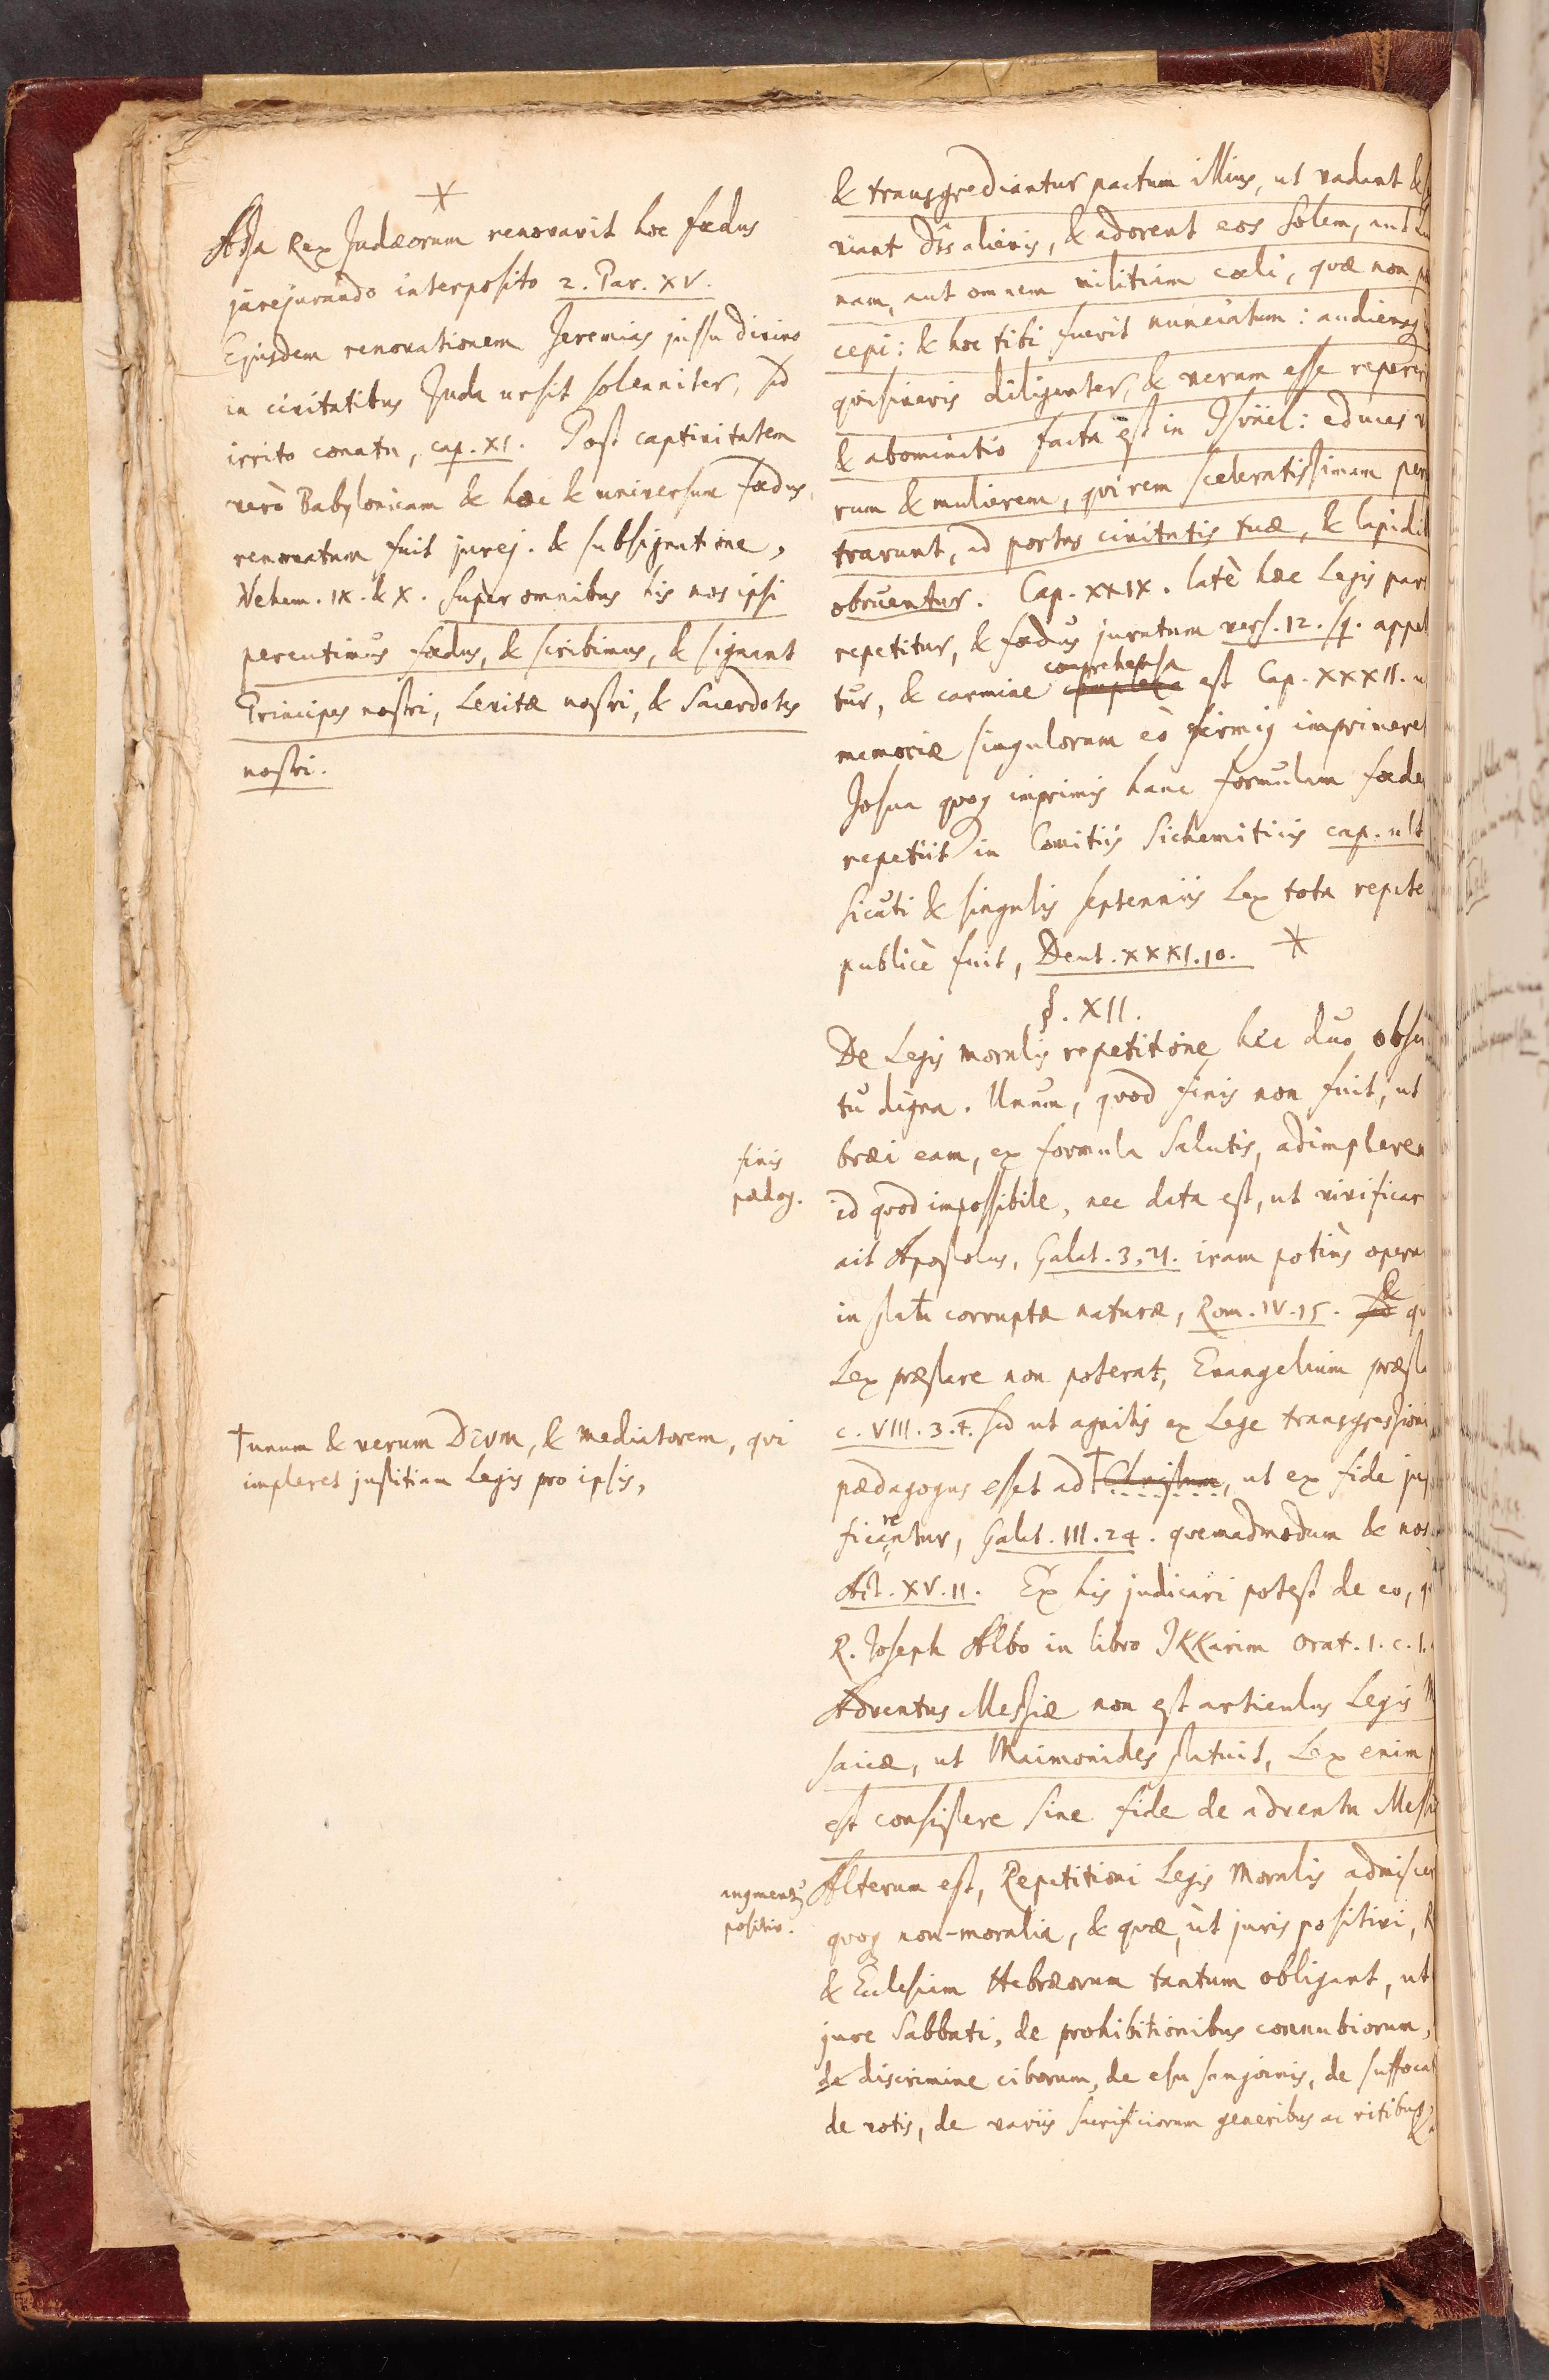 *
Asa Rex Judæorum renovavit hoc fœdus
jurejurando interposito 2. Par. XV.
Ejusdem renovationem Jeremias jussu divino
in civitatibus Juda ursit solenniter, sed
irrito conatu, cap. XI. Post captivitatem
verò Babylonicam & hoc & universum fœdus,
renovatum fuit jurej. & subsignatione,
Nehem. IX. & X. super omnibus his nos ipsi
percutimus fœdus, & scribimus, & signant
Principes nostri, Levitæ nostri, & Sacerdotes
nostri.
finis
pædag.
† unum & verum DEVM, & mediatorem, qvi
impleret justitiam Legis pro ipsis,
augment9
positiv.
& transgrediantur pactum illius, ut vadant &
viant Diis alienis, & adorent eos Solem, aut Lu
nam, aut omnem militiam cœli, quæ non
cepi: & hoc tibi fuerit nunciatum: audiensq;
qvisiveris diligenter, & verum esse repereri
& abominatio facta est in Israel: educes v
rum & mulierem, qvi rem sceleratissimam per
trarunt, ad portas civitatis tuæ, & lapidib
obruentur. Cap. XXIX. latè hæc Legis pars
repetitur, & fœdus juratum vers. 12. sq. appel
tur, & carmine complexa comprehensa est Cap. XXXII. u
memoriæ singulorum eò firmi9 imprimere
Josua qvoq; inprimis hanc formulam fœde
repetiit in Comitiis Sichemiticis cap. ult
sicuti & singulis septenniis Lex tota repete
publicè fuit, Deut. XXXI. 10. *
§. XII.
De Legis moralis repetitione hæc duo obser
tu digna. Unum, qvod finis non fuit, ut
bræi eam, ex formula Salutis, adimpleren
id qvod impossibile, nec data est, ut vivificar
ait Apostolus, Galat. 3, 21. iram potiùs opera
in statu corruptæ naturæ, Rom. IV. 15. sed & qv
Lex præstare non poterat, Evangelium præsta
c. VIII. 3. 4. sed ut agnitis ex Lege transgressioni
pædagogus esset ad † Christum, ut ex fide jus
ficarentur, Galat. III. 24. quemadmodum & nos
Act. XV. 11. Ex his judicari potest de eo, q
R. Joseph Albo in libro IKKarim Orat. 1. c. 1.
Adventus Messiæ non est articulus Legis M
saicæ, ut Maimonides statuit, Lex enim
est consistere sine fide de adventu Messi
Alterum est, Repetitioni Legis Moralis admiscer
qvoq; non-moralia, & quæ, ut juris positivi, R
& Ecclesiam Hebræorum tantum obligant, ut
jure Sabbati, de prohibitionibus connubiorum,
de discrimine ciborum, de esu sangvinis, de suffocat
de votis, de variis sacrificiorum generibus ac ritibus,